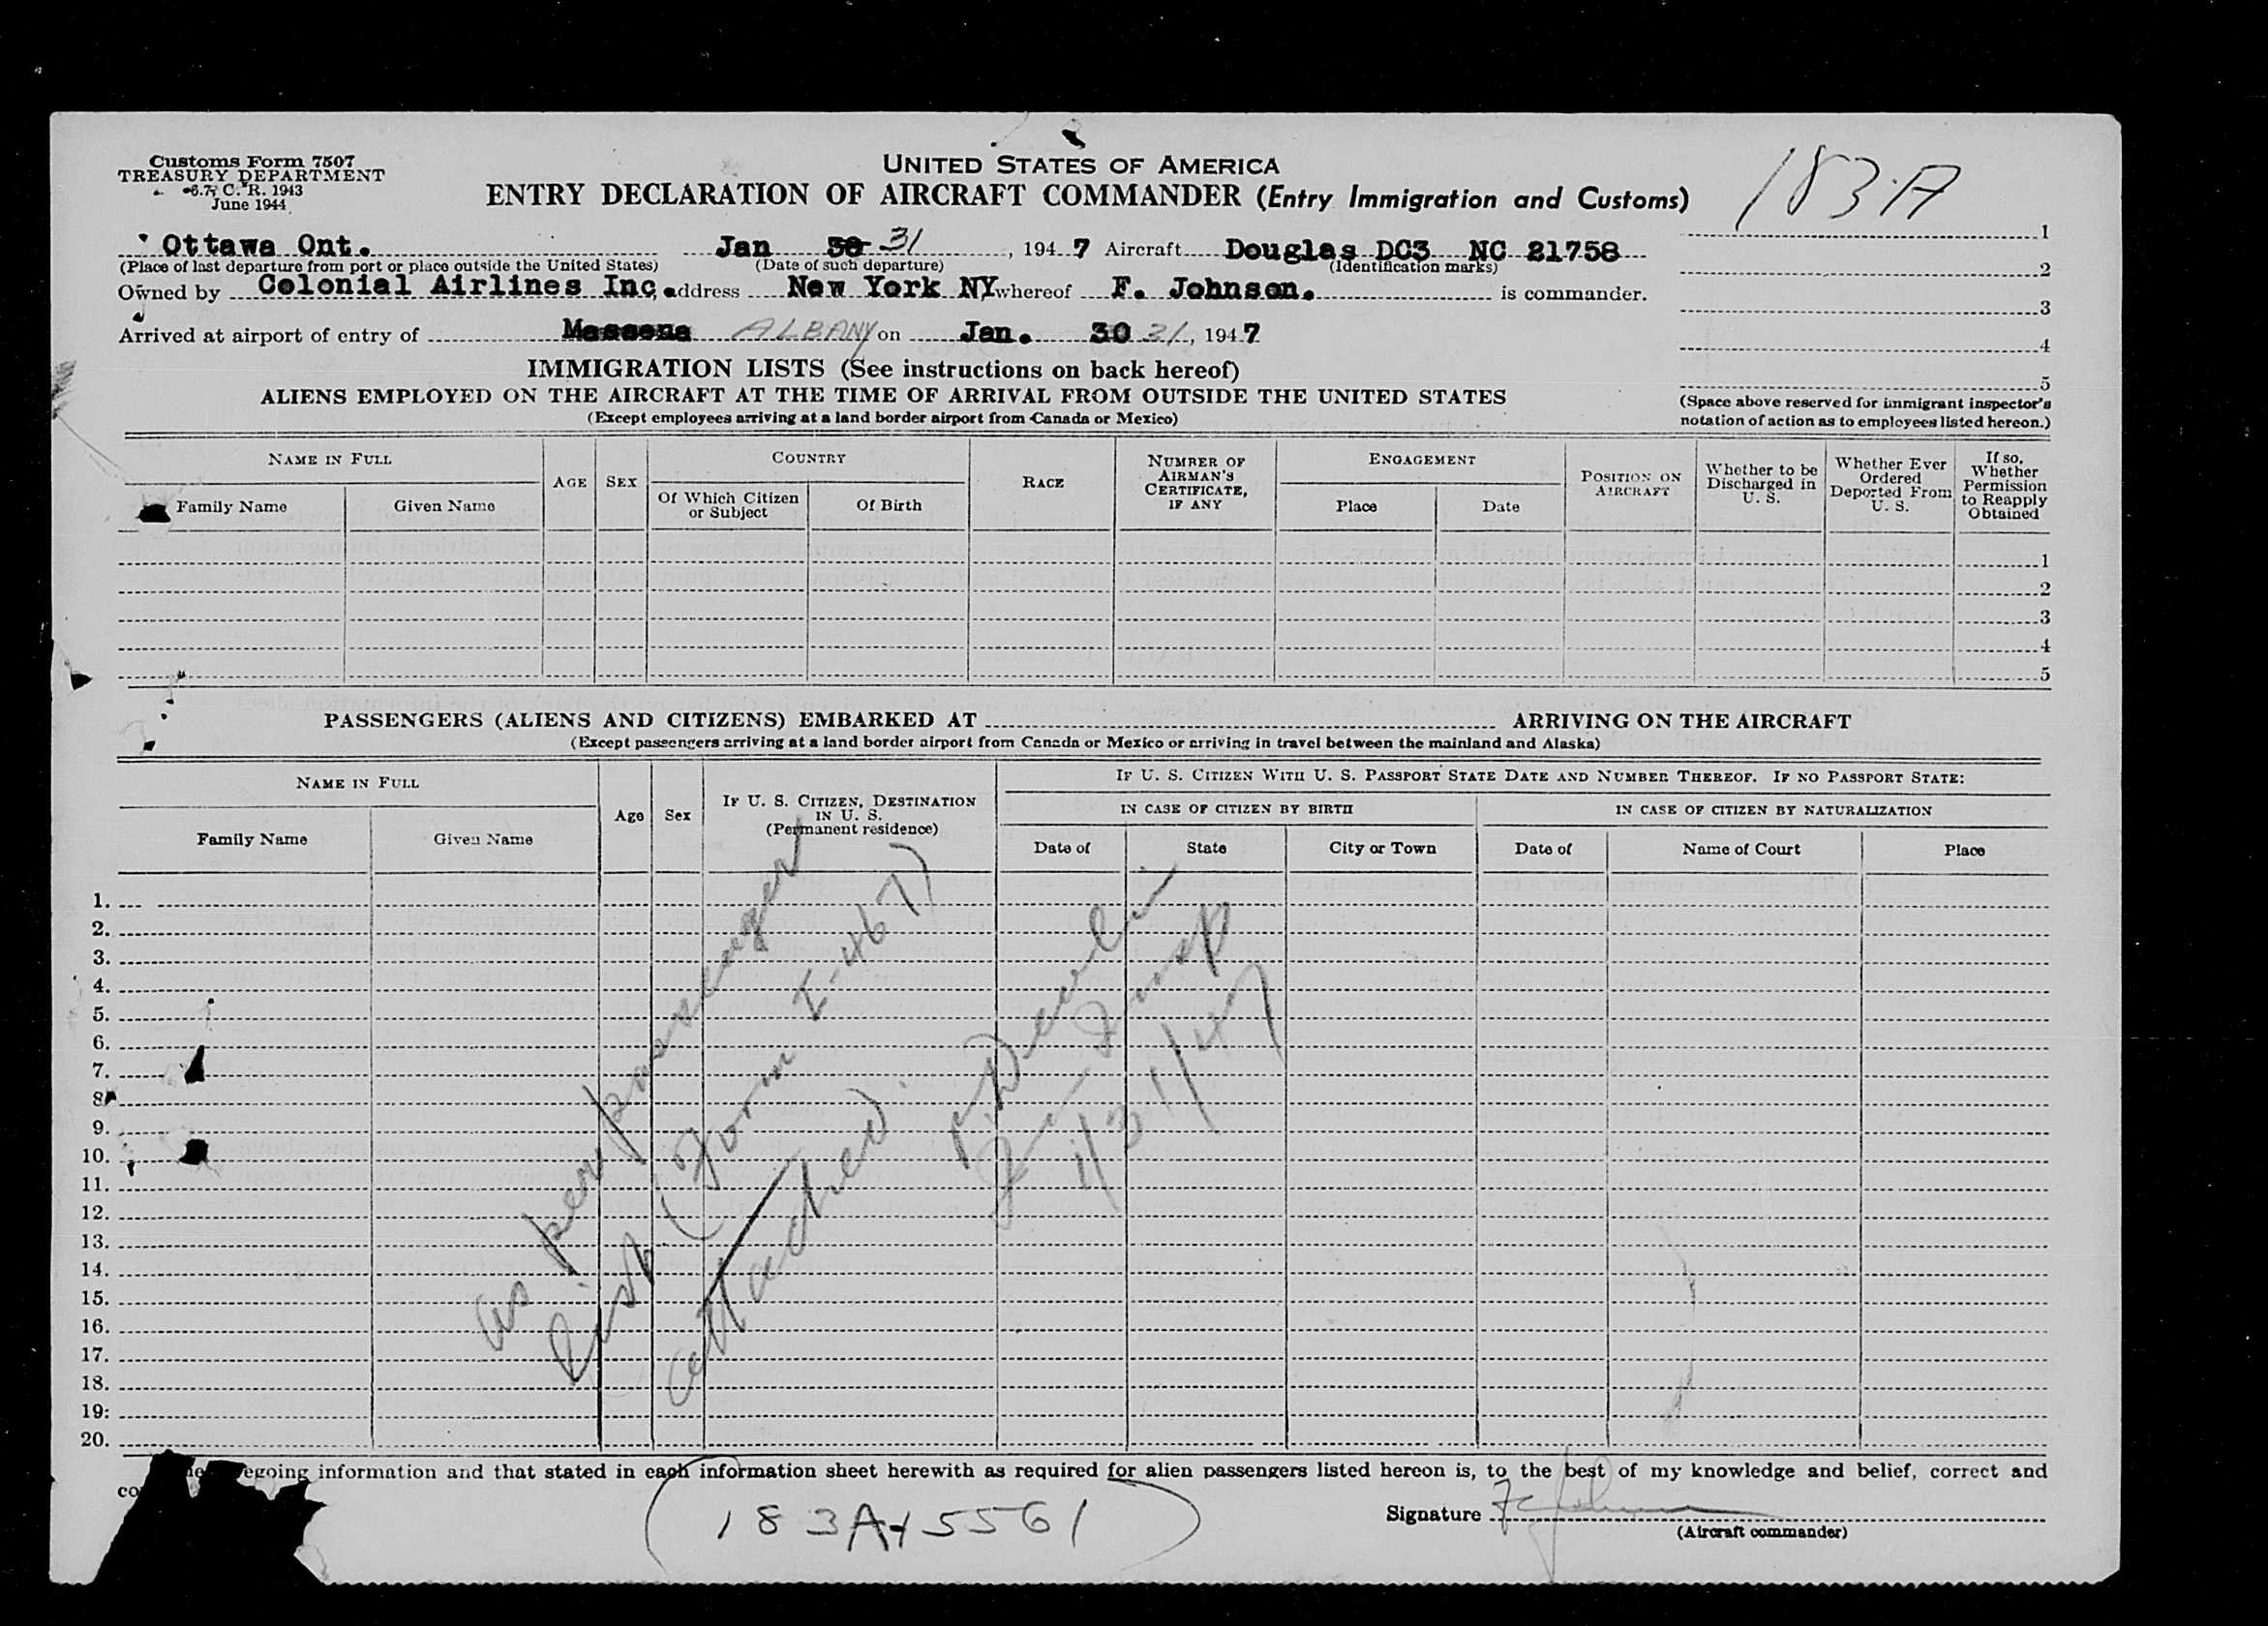 Customs Form 7507
TREASURY DEPARTMENT
6.7, C. R. 1943
June 1944
UNITED STATES OF AMERICA
ENTRY DECLARATION OF AIRCRAFT COMMANDER (Entry Immigration and Customs)
183-A
Ottawa Ont. Jan 30 31, 1947 Aircraft Douglas DC3 NC 21758
(Place of last departure from port or place outside the United States) (Date of such departure) (Identification marks)
Owned by Colonial Airlines Inc address New York NY whereof F. Johnson. is commander.
Arrived at airport of entry of Massena ALBANY on Jan. 30 31, 1947
1
2
3
4
5
(Space above reserved for immigrant inspector's
notation of action as to employees listed hereon.)
IMMIGRATION LISTS (See instructions on back hereof)
ALIENS EMPLOYED ON THE AIRCRAFT AT THE TIME OF ARRIVAL FROM OUTSIDE THE UNITED STATES
(Except employees arriving at a land border airport from Canada or Mexico)
NAME IN FULL
Family Name
Given Name
AGE
SEX
COUNTRY
Of Which Citizen
or Subject
Of Birth
RACE
NUMBER OF
AIRMAN'S
CERTIFICATE,
IF ANY
ENGAGEMENT
Place
Date
POSITION ON
AIRCRAFT
Whether to be
Discharged in
U. S.
Whether Ever
Ordered
Deported From
U. S.
If so,
Whether
Permission
to Reapply
Obtained
1
2
3
4
5
PASSENGERS (ALIENS AND CITIZENS) EMBARKED AT ARRIVING ON THE AIRCRAFT
(Except passengers arriving at a land border airport from Canada or Mexico or arriving in travel between the mainland and Alaska)
NAME IN FULL
Family Name
Given Name
Age
Sex
IF U. S. CITIZEN, DESTINATION
IN U. S.
(Permanent residence)
IF U. S. CITIZEN WITH U. S. PASSPORT STATE DATE AND NUMBER THEREOF. IF NO PASSPORT STATE:
IN CASE OF CITIZEN BY BIRTH
IN CASE OF CITIZEN BY NATURALIZATION
Date of
State
City or Town
Date of
Name of Court
Place
1.
2.
3.
4.
5.
6.
7.
8
9.
10.
11.
12.
13.
14.
15.
16.
17.
18.
19:
20.
as per passenger
List (Form I-467)
attached.
Insp
1/31/47
egoing information and that stated in each information sheet herewith as required for alien passengers listed hereon is, to the best of my knowledge and belief, correct and
co
(183A-15561)
Signature
(Aircraft commander)